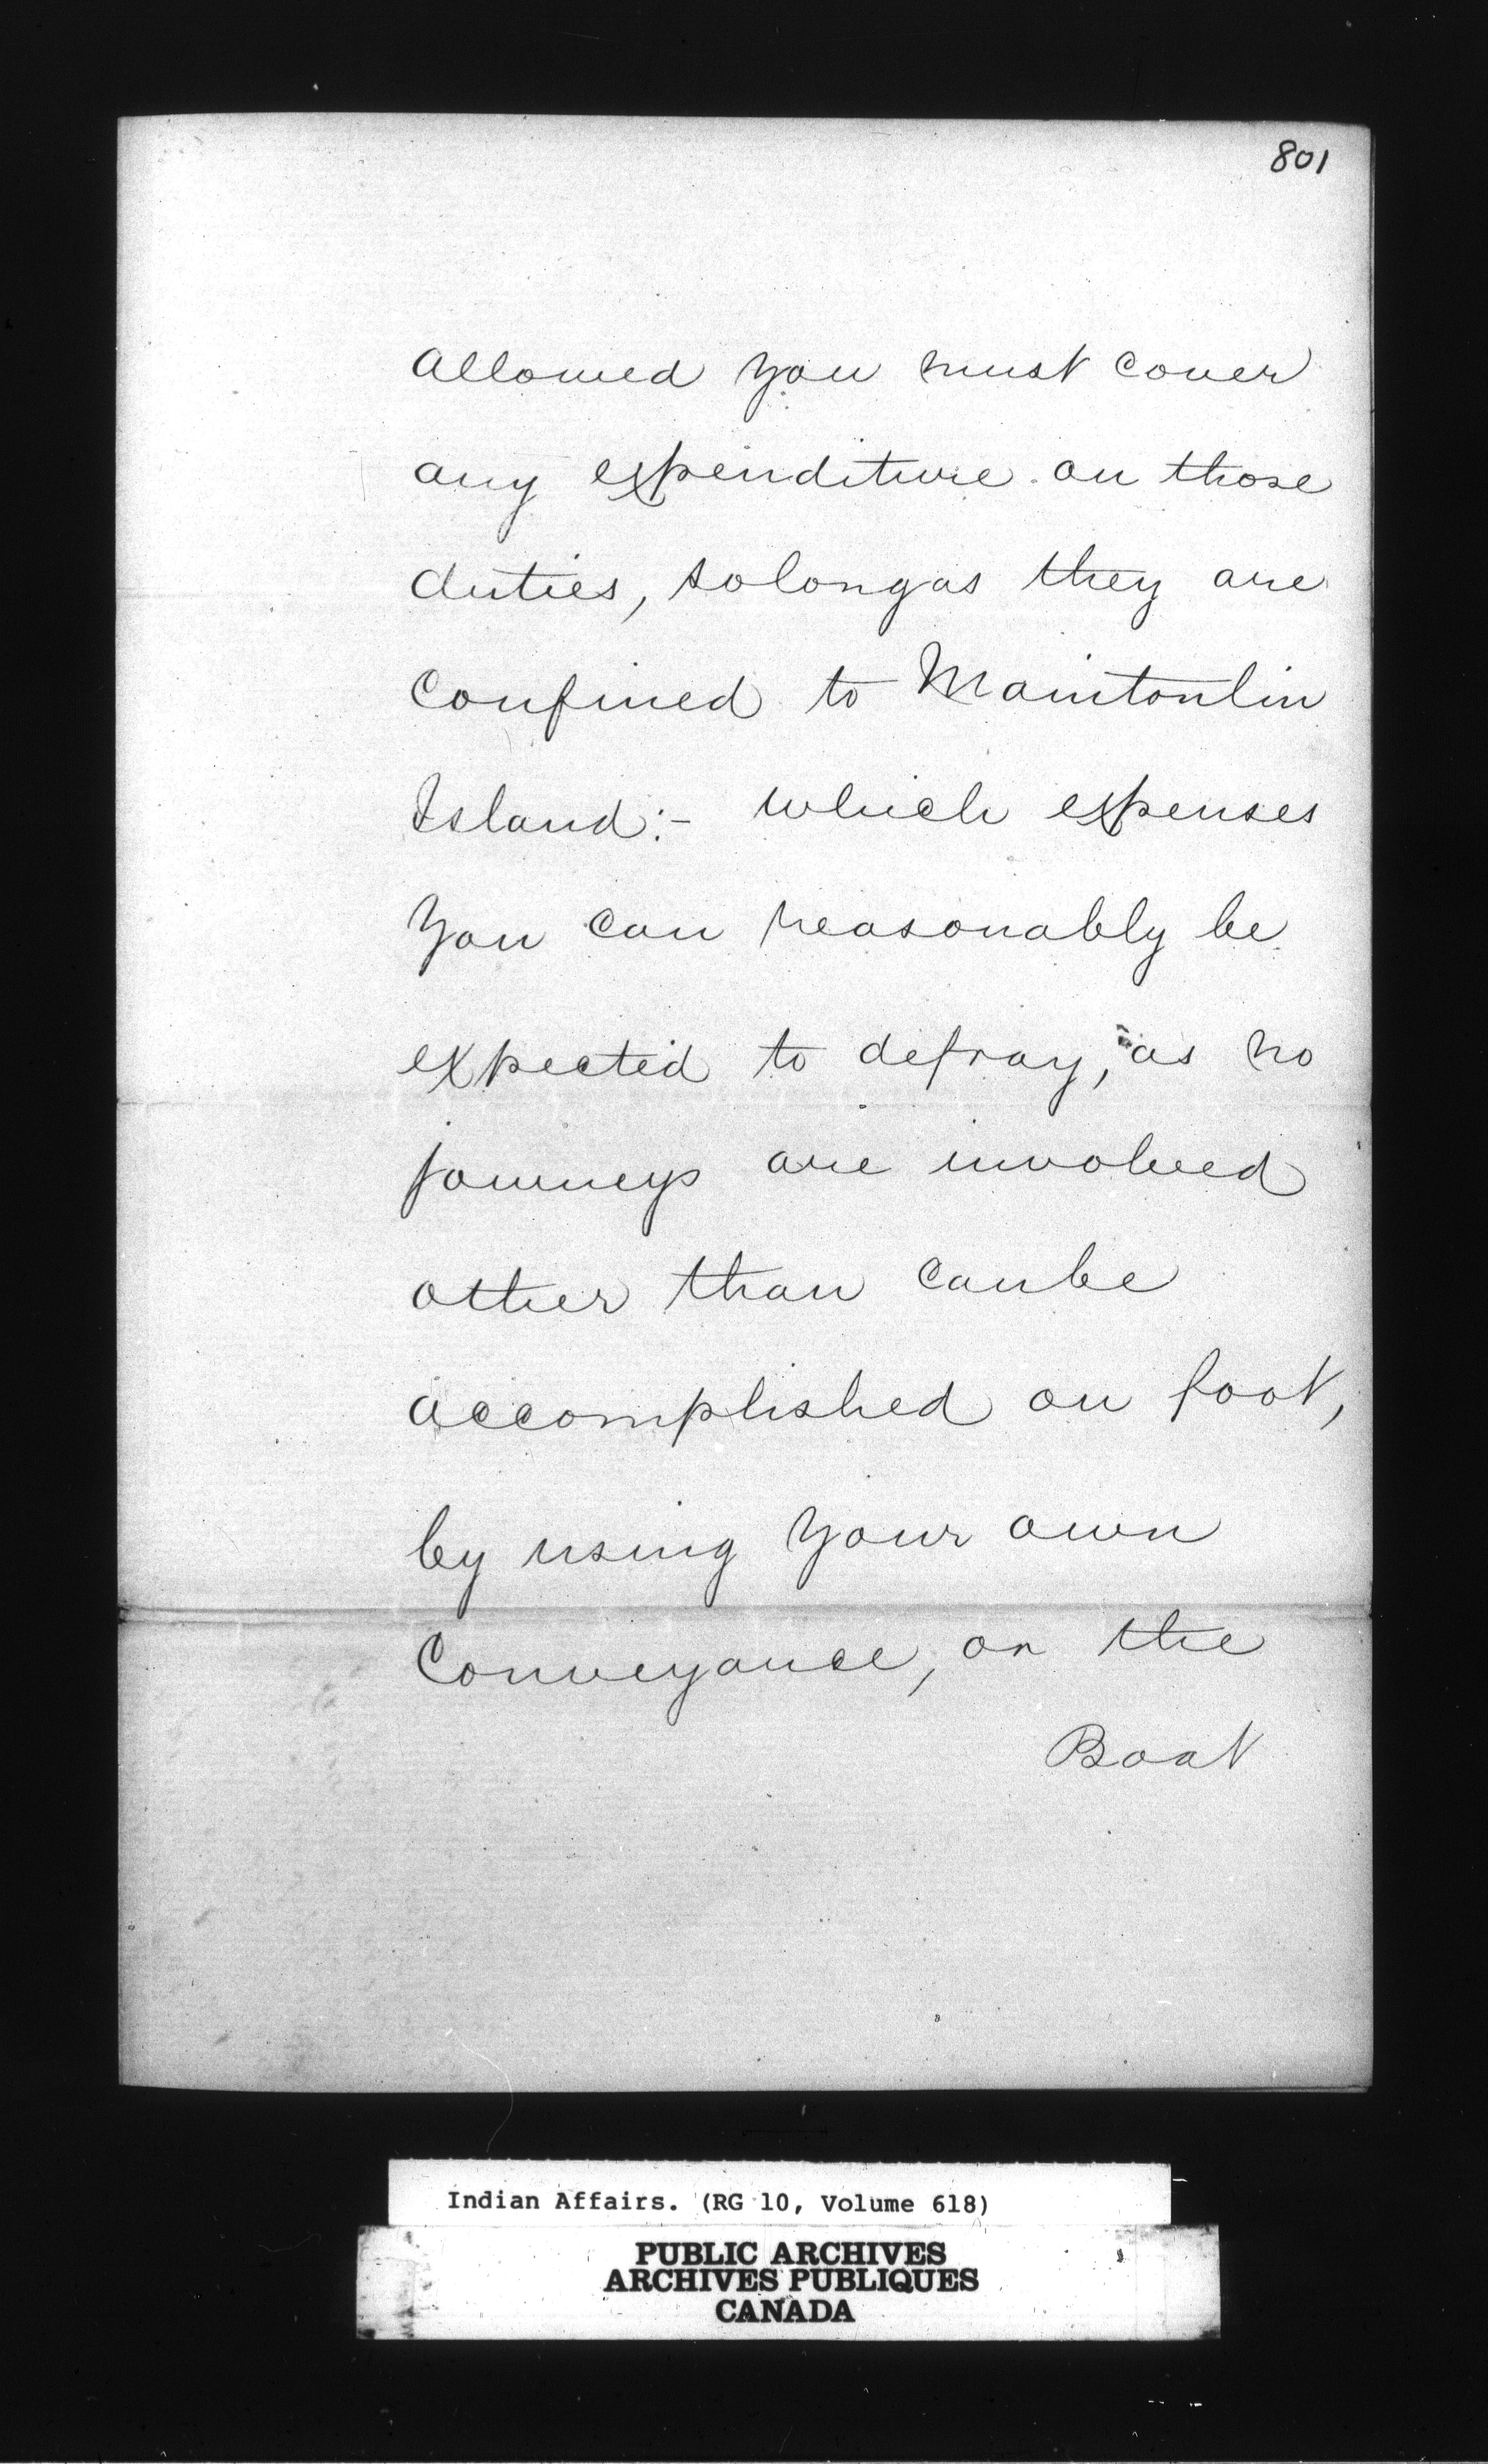 801
allowed you must cover
any expenditure on those
duties, so long as they are
confined to Manitoulin
Island:- which expenses
you can reasonably be
expected to defray, as no
journeys are involved
other than can be
accomplished on foot,
by using your own
Conveyance, or the
Boat
Indian Affairs. (RG 10, Volume 618)
PUBLIC ARCHIVES
ARCHIVES PUBLIQUES
CANADA